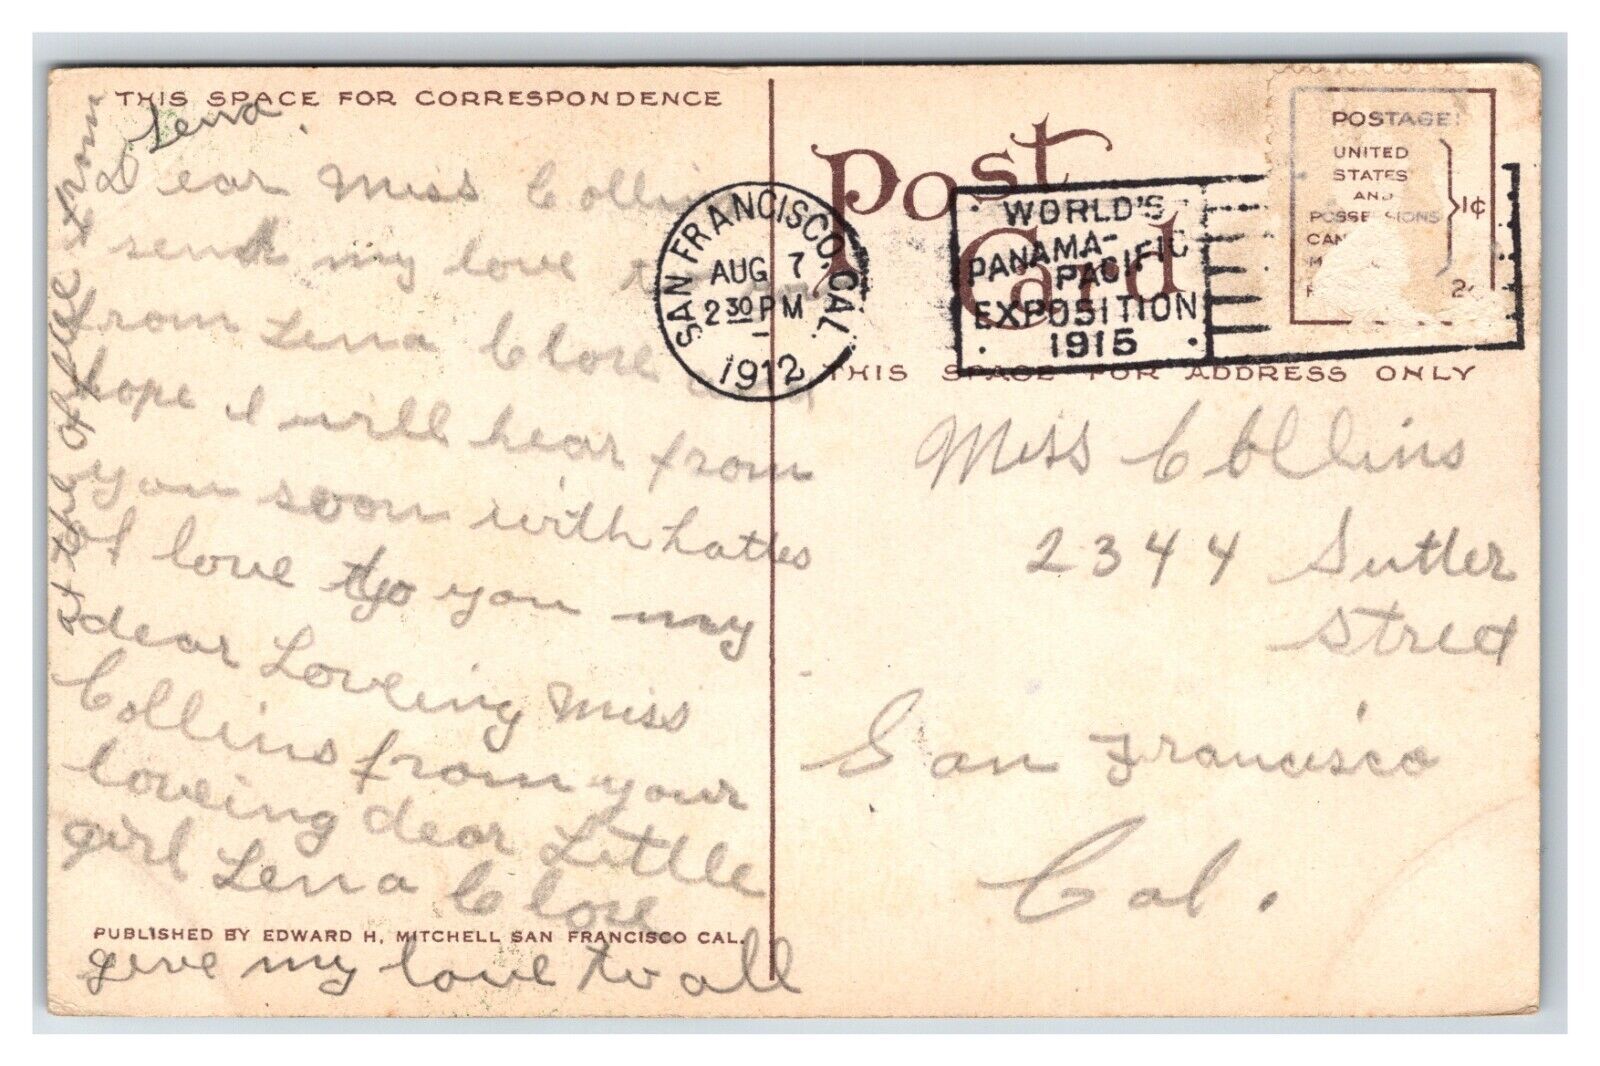 THIS SPACE FOR CORRESPONDENCE
Dear Miss Collins
I send my love to
from Lena Close
hope I will hear from
you soon with
of love to you my
dear Loveing Miss
Collins from your
loveing dear Little
girl Lena Close
PUBLISHED BY EDWARD H. MITCHELL SAN FRANCISCO CAL.
give my love to all
at the office from
Lena.
Post Card
SAN FRANCISCO, CAL.
AUG 7
2 30 PM
1912
WORLD'S
PANAMA-
PACIFIC
EXPOSITION
1915
POSTAGE:
UNITED
STATES
AND
1¢
THIS SPACE FOR ADDRESS ONLY
Miss Collins
2344 Sutter
Street
San Francisco
Cal.